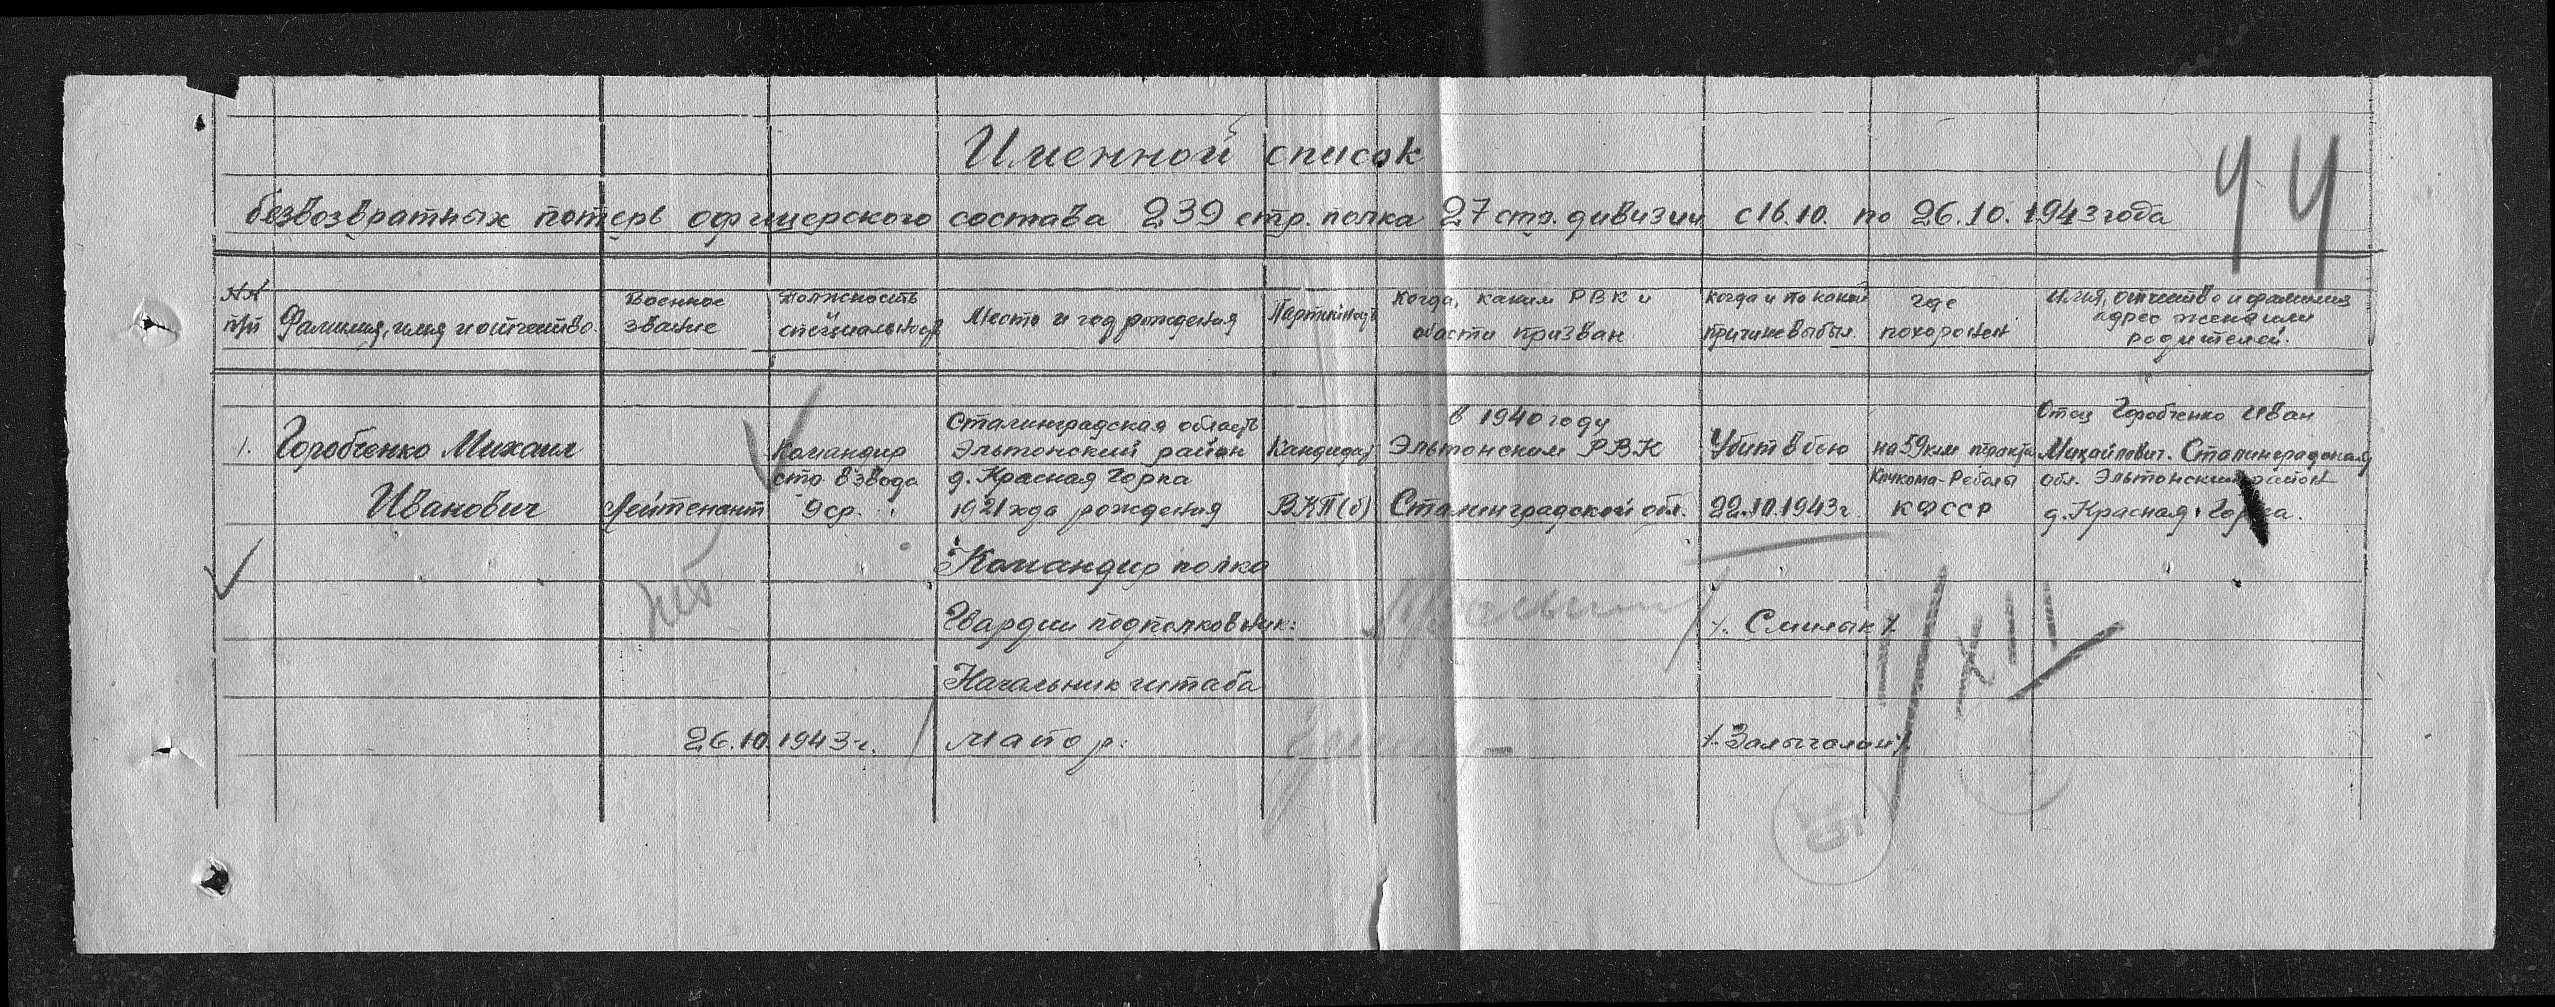 44
Именной список
безвозвратных потерь офицерского состава 239 стр. полка 27 стр. дивизии с 16.10. по 26.10.1943 года
№№ п/п
Фамилия, имя и отчество
Военное звание
Должность специальность
Место и год рождения
Партийность
Когда, каким РВК и области призван
Когда и по какой причине выбыл
Где похоронен
Имя, отчество и фамилия адрес жены или родителей.
1.
Горобченко Михаил
Иванович
Лейтенант
Командир
стр. взвода
9 ср.
Сталинградская область
Эльтонский район
д. Красная Горка
1921 года рождения
Кандидат
ВКП(б)
в 1940 году
Эльтонским РВК
Сталинградской обл.
Убит в бою
22.10.1943 г.
на 59 км тракта
Кочкома-Реболы
КФССР
Отец Горобченко Иван
Михайлович. Сталинградская
обл. Эльтонский район
д. Красная Горка.
Командир полка
Гвардии подполковник: /Смилык/
Начальник штаба
26.10.1943 г. майор: